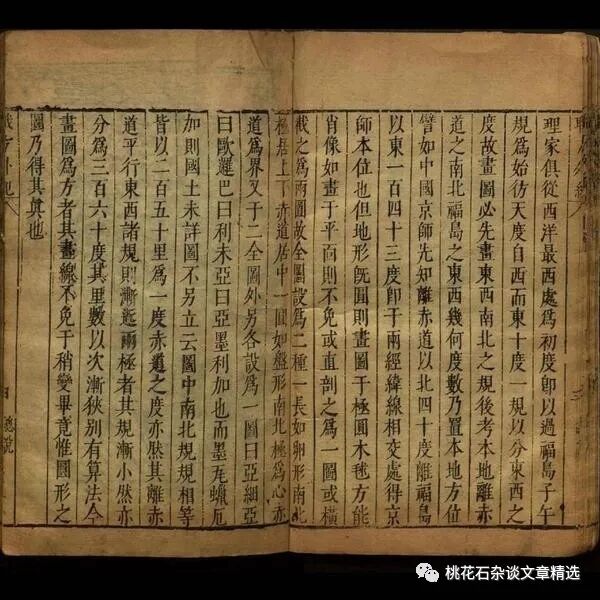 理家俱從西洋最西處爲初度卽以過福島子午
規爲始彷天度自西而東十度一規以分東西之
度故畫圖必先畫東西南北之規後考本地離赤
道之南北福島之東西幾何度數乃置本地方位
譬如中國京師先知離赤道以北四十度離福島
以東一百四十三度卽于兩經緯線相交處得京
師本位也但地形旣圓則畫圖于極圓木毬方能
肖像如畫于平面則不免或直剖之爲一圖或橫
截之爲兩圖故全圖設爲二種一長如卵形南北
極居上下赤道居中一圓如盤形南北極爲心赤
道爲界又于二全圖外另各設爲一圖曰亞細亞
曰歐邏巴曰利未亞曰亞墨利加也而墨瓦蠟厄
加則國土未詳圖不另立云圖中南北規規相等
皆以二百五十里爲一度赤道之度亦然其離赤
道平行東西諸規則漸邇兩極者其規漸小然亦
分爲三百六十度其里數以次漸狹别有算法今
畫圖爲方者其畫線不免于稍變畢竟惟圓形之
圖乃得其眞也
總說
桃花石杂谈文章精选